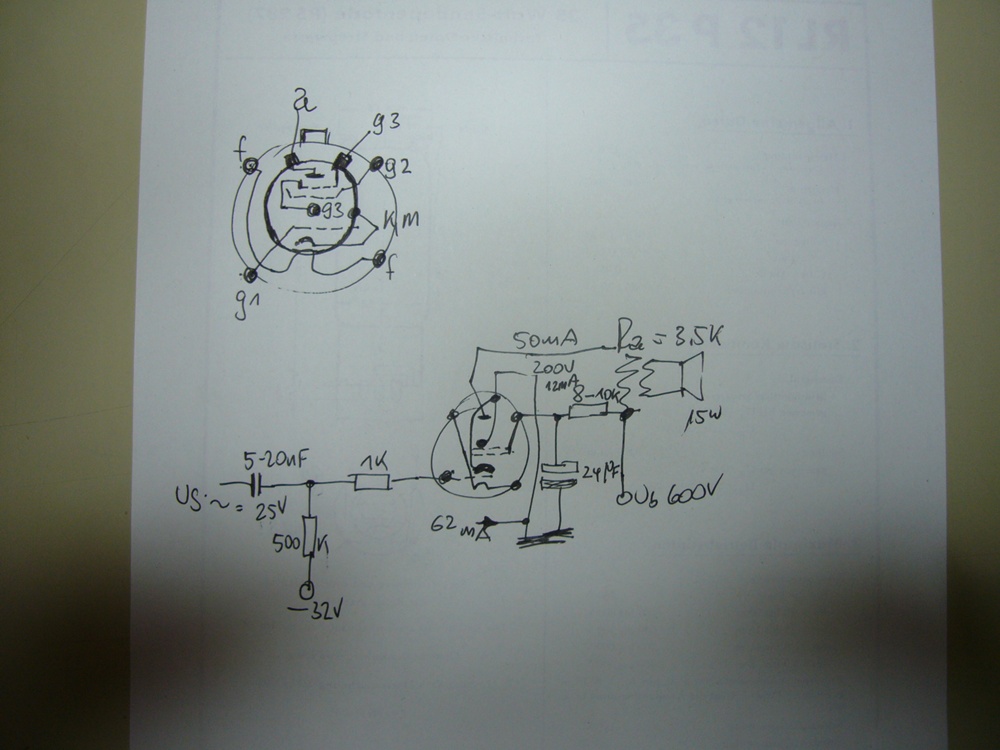 a
g3
f
g2
g3
k m
f
g1
50mA
Ra = 3.5K
200V
12mA
8-10K
15W
5-20nF
1K
24µF
US ~ = 25V
Ub 600V
62 mA
500 K
-32V